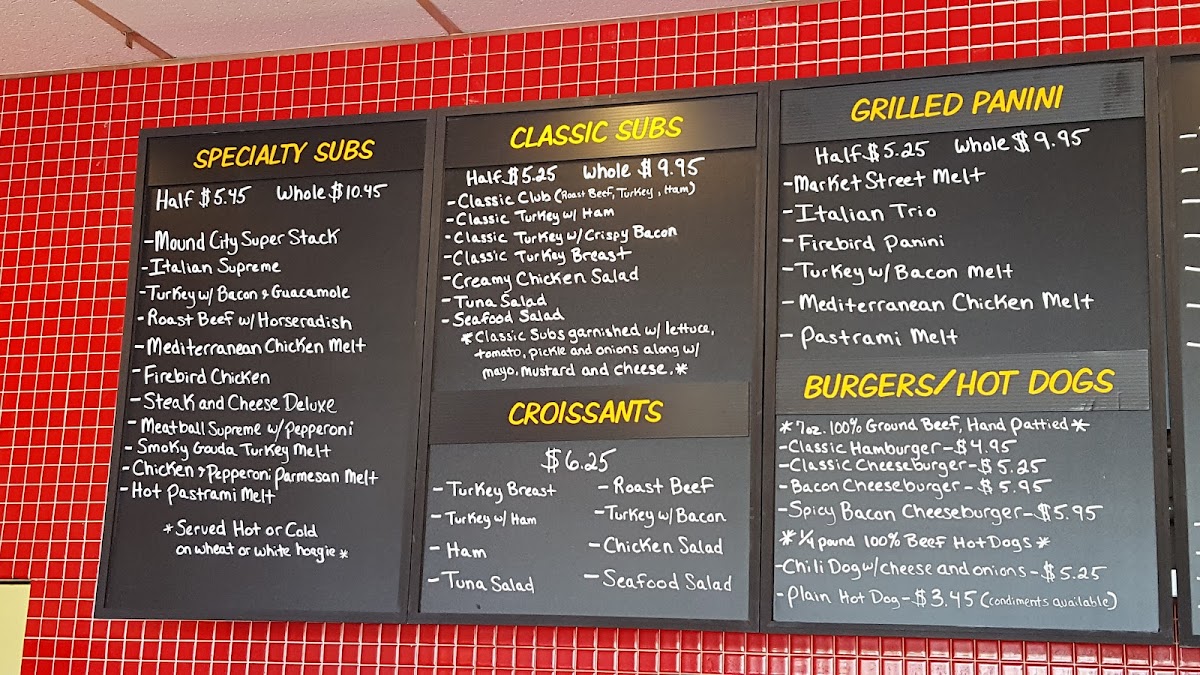 SPECIALTY SUBS
Half $5.45 Whole $10.45
-Mound City Super Stack
-Italian Supreme
-Turkey w/ Bacon & Guacamole
-Roast Beef w/ Horseradish
-Mediterranean Chicken Melt
-Firebird Chicken
-Steak and Cheese Deluxe
-Meatball Supreme w/ Pepperoni
-Smoky Gouda Turkey Melt
-Chicken & Pepperoni Parmesan Melt
-Hot Pastrami Melt
*Served Hot or Cold
on wheat or white hoagie*
CLASSIC SUBS
Half $5.25 Whole $9.95
-Classic Club (Roast Beef, Turkey, Ham)
-Classic Turkey w/ Ham
-Classic Turkey w/ Crispy Bacon
-Classic Turkey Breast
-Creamy Chicken Salad
-Tuna Salad
-Seafood Salad
*Classic Subs garnished w/ lettuce,
tomato, pickle and onions along w/
mayo, mustard and cheese.*
CROISSANTS
$6.25
-Turkey Breast
-Turkey w/ Ham
-Ham
-Tuna Salad
-Roast Beef
-Turkey w/ Bacon
-Chicken Salad
-Seafood Salad
GRILLED PANINI
Half $5.25 Whole $9.95
-Market Street Melt
-Italian Trio
-Firebird Panini
-Turkey w/ Bacon Melt
-Mediterranean Chicken Melt
-Pastrami Melt
BURGERS/HOT DOGS
*7oz. 100% Ground Beef, Hand Pattied*
-Classic Hamburger-$4.95
-Classic Cheeseburger-$5.25
-Bacon Cheeseburger-$5.95
-Spicy Bacon Cheeseburger-$5.95
*1/4 pound 100% Beef Hot Dogs*
-Chili Dog w/ cheese and onions-$5.25
-Plain Hot Dog-$3.45 (condiments available)